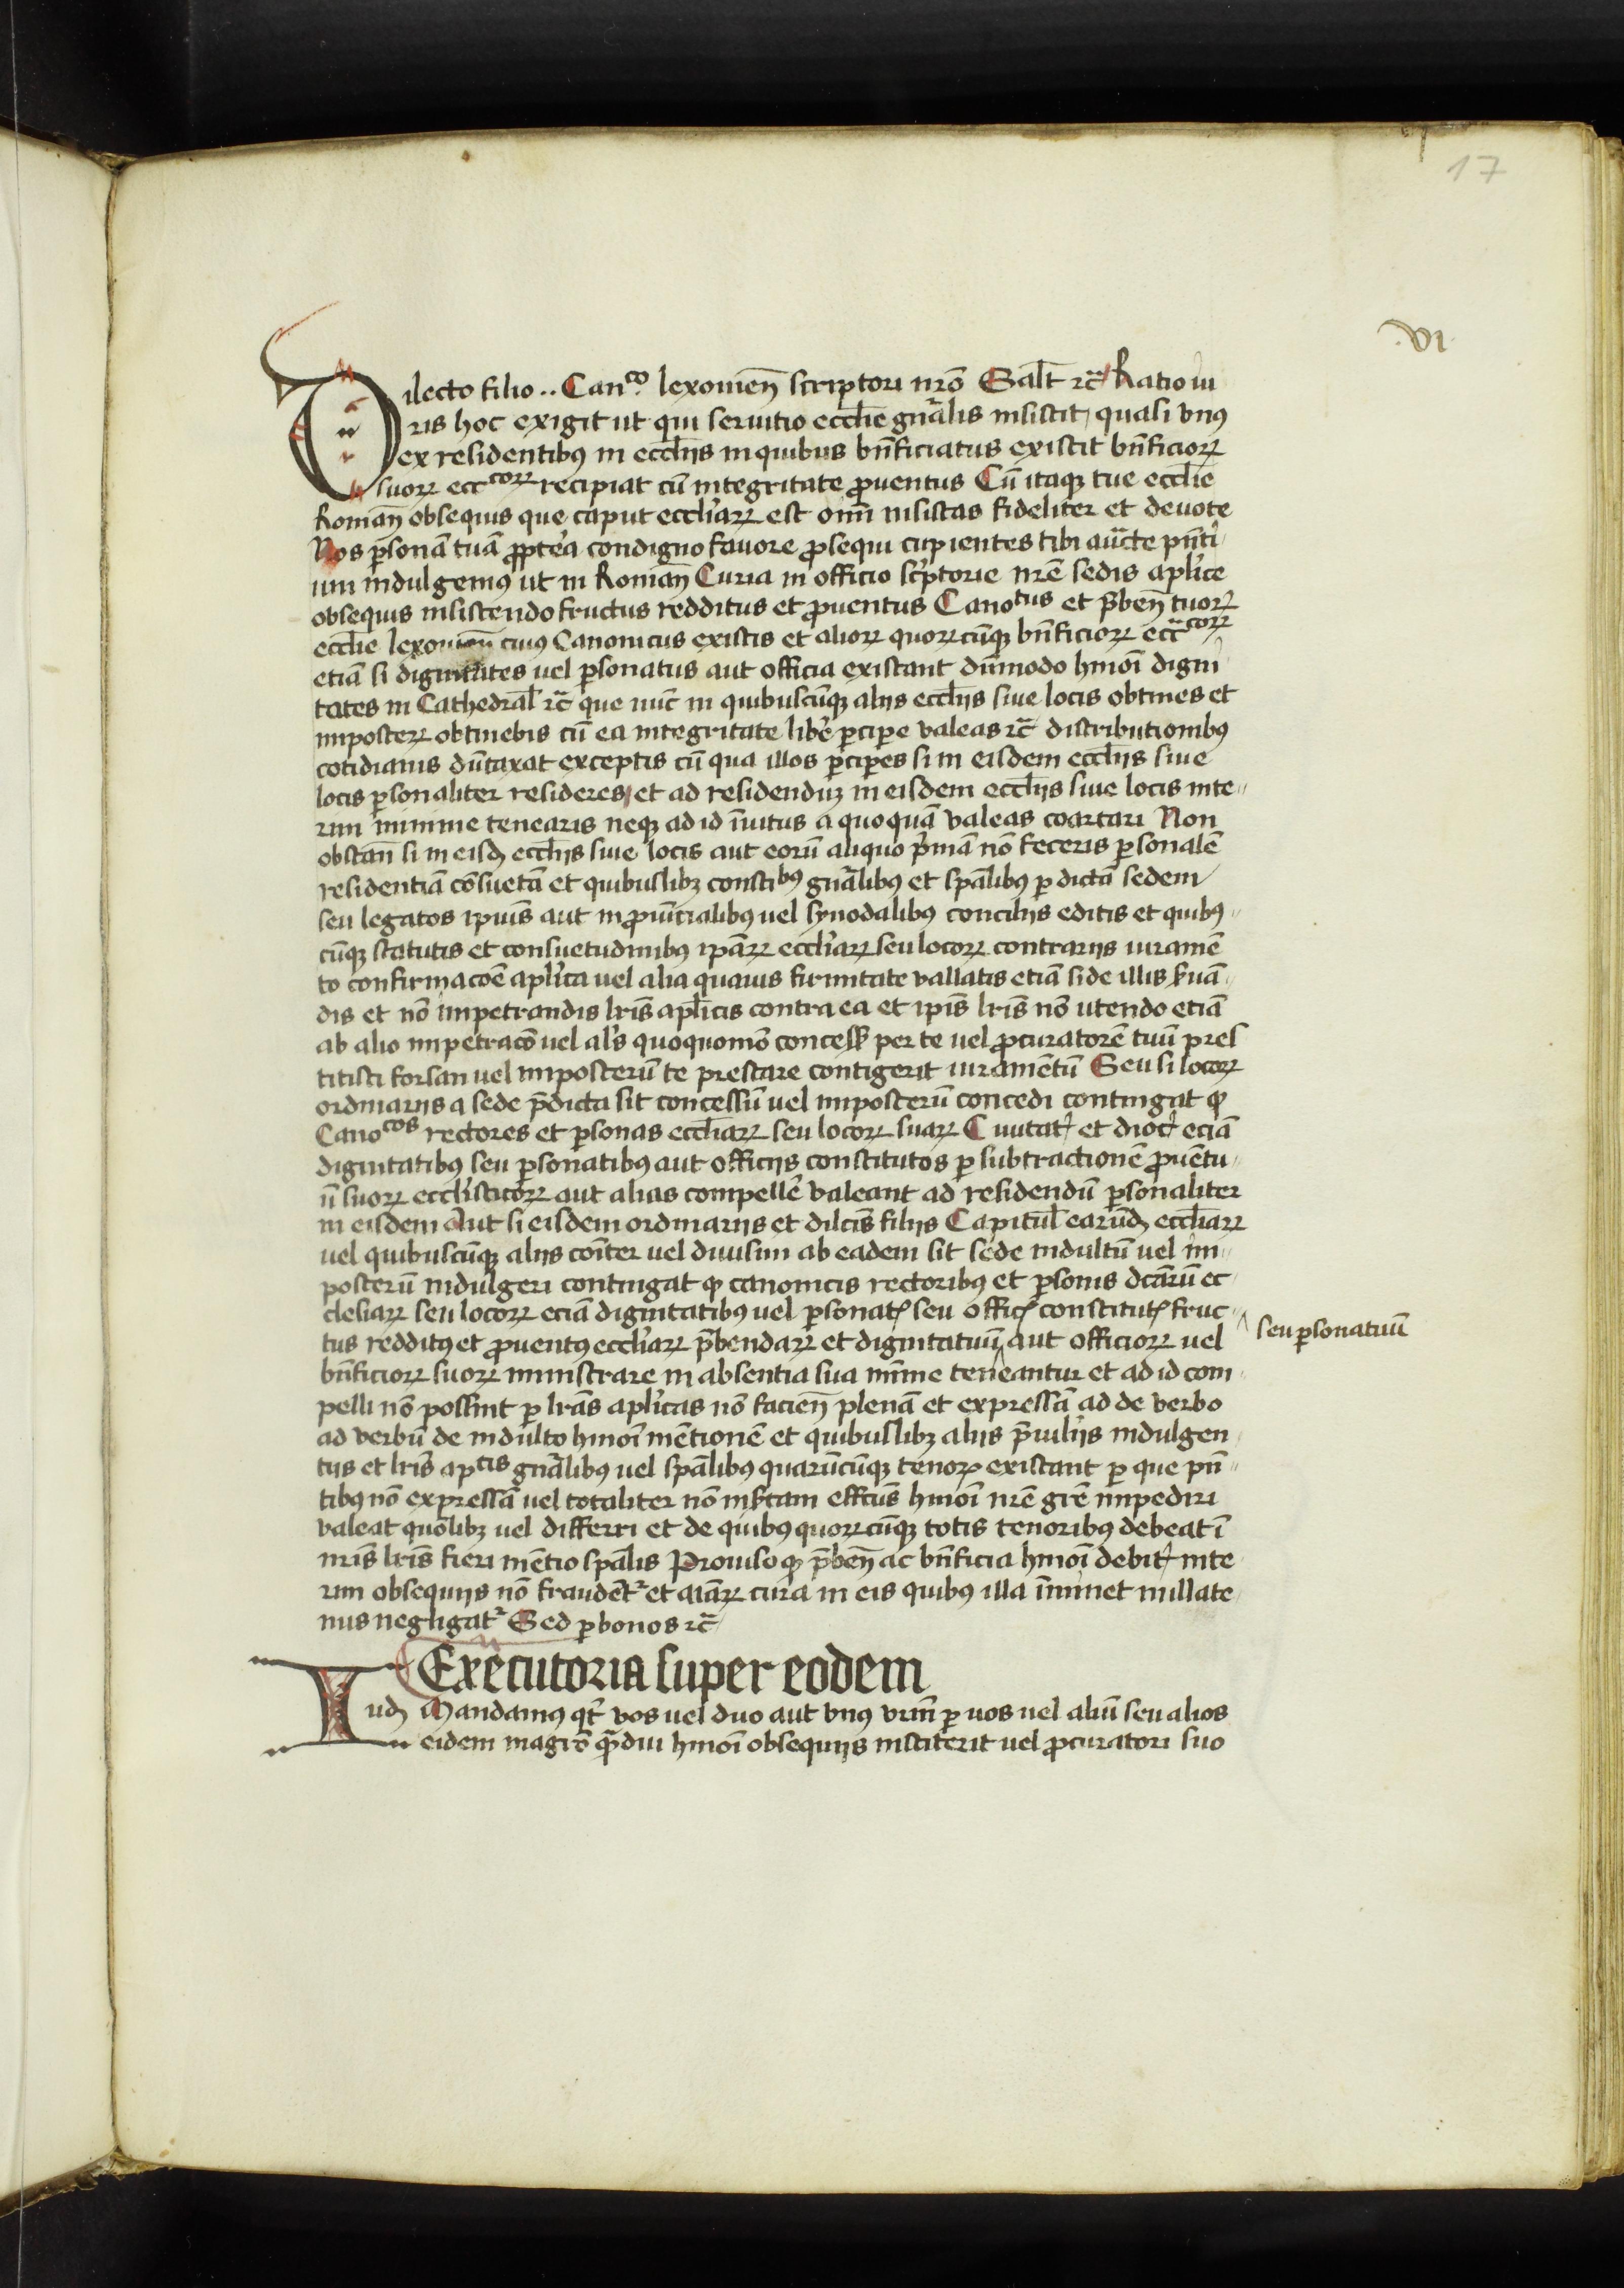 17
.VI.
Dilecto filio .. Can^co. lexouien̄ scriptori nr̄o Salt̄ ⁊c̄ Ratio iu
ris hoc exigit ut qui seruitio eccl̄ie gn̄alis insistit, quasi vnꝰ
ex residentibꝰ in eccl̄ijs in quibus bn̄ficiatus existit bn̄ficioꝝ
suoꝝ ecc^coꝝ recipiat cū integritate ꝓuentus Cū itaqꝫ tue eccl̄ie
Roman̄ obsequijs que caput eccl̄iaꝝ est om̄i insistas fideliter et deuote
Nos ꝑsonā tuā ꝓpterea condigno fauore ꝓsequi cupientes tibi auc̄te pn̄ti
um indulgemꝰ ut in Roman̄ Curia in officio sc̄ptorie nr̄e sedis apl̄ice
obsequijs insistendo fructus redditus et ꝓuentus Cano^tus et p̄ben̄ tuoꝝ
eccl̄ie lexouien̄ cuiꝰ Canonicus existis et alioꝝ quoꝝcūqꝫ bn̄ficioꝝ ecc̄^coꝝ
etiā si dignitates uel ꝑsonatus aut officia existant dūmodo hmōi digni
tates in Cathedral̄ ⁊c̄ que nūc in quibuscūqꝫ alijs eccl̄ijs siue locis obtines et
imposteꝝ obtinebis cū ea integritate lib̄e ꝑcipe valeas ⁊c̄ distributionibꝰ
cotidianis dūtaxat exceptis cū qua illos ꝑciꝑes si in eisdem eccl̄ijs siue
locis ꝑsonaliter resideres, et ad residenduꝫ in eisdem eccl̄ijs siue locis inte
rim minime tenearis neqꝫ ad id īuitus a quoquā valeas coartari Non
obstan̄ si in eisdꝫ eccl̄ijs siue locis aut eorū aliquo p̄mā nō feceris ꝑsonalē
residentiā cōsuetā et quibuslibꝫ consti^bꝰ gn̄alibꝰ et sp̄alibꝰ ꝑ dictā sedem
seu legatos ip̄ius aut in ꝓuīcialibꝰ uel synodalibꝰ concilijs editis et quibꝰ
cūqꝫ statutis et consuetudinibꝰ ip̄aꝝ eccl̄iaꝝ seu locoꝝ contrarijs iuramē
to confirmacōe apl̄ica uel alia quauis firmitate vallatis etiā si de illis ẜuā
dis et nō impetrandis lr̄is apl̄icis contra ea et ip̄is lr̄is nō utendo etiā
ab alio impetracō uel al̄s quoquomō conceſſ per te uel ꝓcuratorē tuū pres
titisti forsan uel imposterū te prestare contigerit iuramentū Seu si locoꝝ
ordinarijs a sede p̄dicta sit concessū uel imposterū concedi contingat ꝙ
Cano^cos rectores et ꝑsonas eccl̄iaꝝ seu locoꝝ suaꝝ Ciuitat̄ et dioc̄ eciā
dignitatibꝰ seu ꝑsonatibꝰ aut officijs constitutos ꝑ subtractionē ꝓuentu
ū suoꝝ eccl̄isticoꝝ aut alias compelle᷑ valeant ad residendū ꝑsonaliter
in eisdem Aut si eisdem ordinarijs et dilc̄is filijs Capitul̄ earūdꝫ eccl̄iaꝝ
uel quibuscūqꝫ alijs cōiter uel diuisim ab eadem sit sede indultū uel im
posterū indulgeri contingat ꝙ canonicis rectoribꝰ et ꝑsonis dc̄arū ec
clesiaꝝ seu locoꝝ eciā dignitatibꝰ uel ꝑsonatꝭ seu officꝭ constitutꝭ fruc
tus redditꝰ et ꝓuentꝰ eccl̄iaꝝ p̄bendaꝝ et dignitatuū ^ aut officioꝝ uel
^ seu ꝑsonatuū
bn̄ficioꝝ suoꝝ ministrare in absentia sua mīme teneantur et ad id com
pelli nō possint ꝑ lr̄as apl̄icas nō facien̄ plenā et expressā ad de verbo
ad verbū de indulto hmōi mētionē et quibuslibꝫ alijs p̄uil̄ijs indulgen
tijs et lr̄is ap^cis gn̄alibꝰ uel sp̄alibꝰ quarūcūqꝫ tenoꝝ existant ꝑ que pn̄
tibꝰ nō expressā uel totaliter nō insertam effc̄us hmōi nr̄e gr̄e impediri
valeat quōlibꝫ uel differri et de quibꝰ quoꝝcūqꝫ totis tenoribꝰ debeat ī
nr̄is lr̄is fieri mētio sp̄alis Prouiso qꝫ p̄ben̄ ac bn̄ficia hmōi debit̄ inte
rim obsequijs nō fraudēt᷑ et aīaꝝ cura in eis quibus illa īminet nullate
nus negligat᷑ Sed ꝑ bonos ⁊c̄
Executoria super eodem
Iudꝫ Mandamꝰ qt̄ vos uel duo aut vnꝰ vr̄m ꝑ uos uel aliū seu alios
eidem magr̄o qᷓdiu hmōi obsequijs institerit uel ꝓcuratori suo